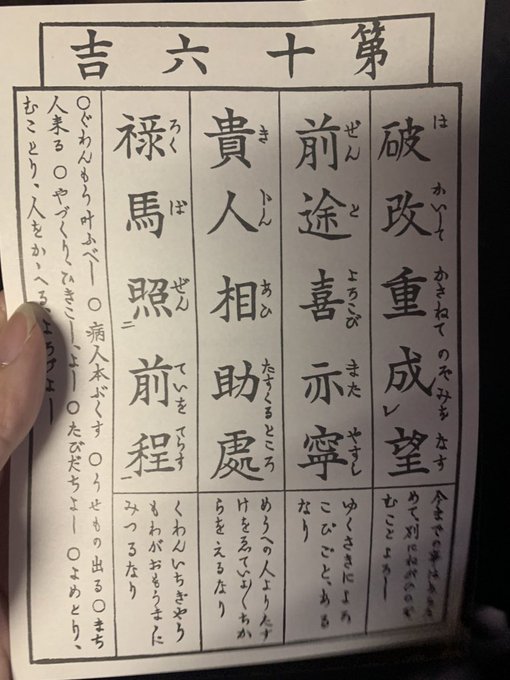 第十六吉
破改重成望
は かいして かさねて のぞみを なす
レ
前途喜亦寧
ぜん と よろこび また やすし
貴人相助處
き じん あひ たすくるところ
禄馬照前程
ろく ば ぜん ていを てらす
二 一
今までの
めて、別に
むことよろし
ゆくさきによろ
こびごと、ある
なり
めうへの人よりたす
けをゑていよくちか
らをえるなり
くわんいちぎやう
もわがおもうまゝに
みつるなり
○ぐわんもう叶ふべし ○病人本ぶくす ○うせもの出る ○まち
人来る ○やづくり、ひきこし、よし ○たびだちよし ○よめとり、
むことり、人をかゝへる、よろづよし